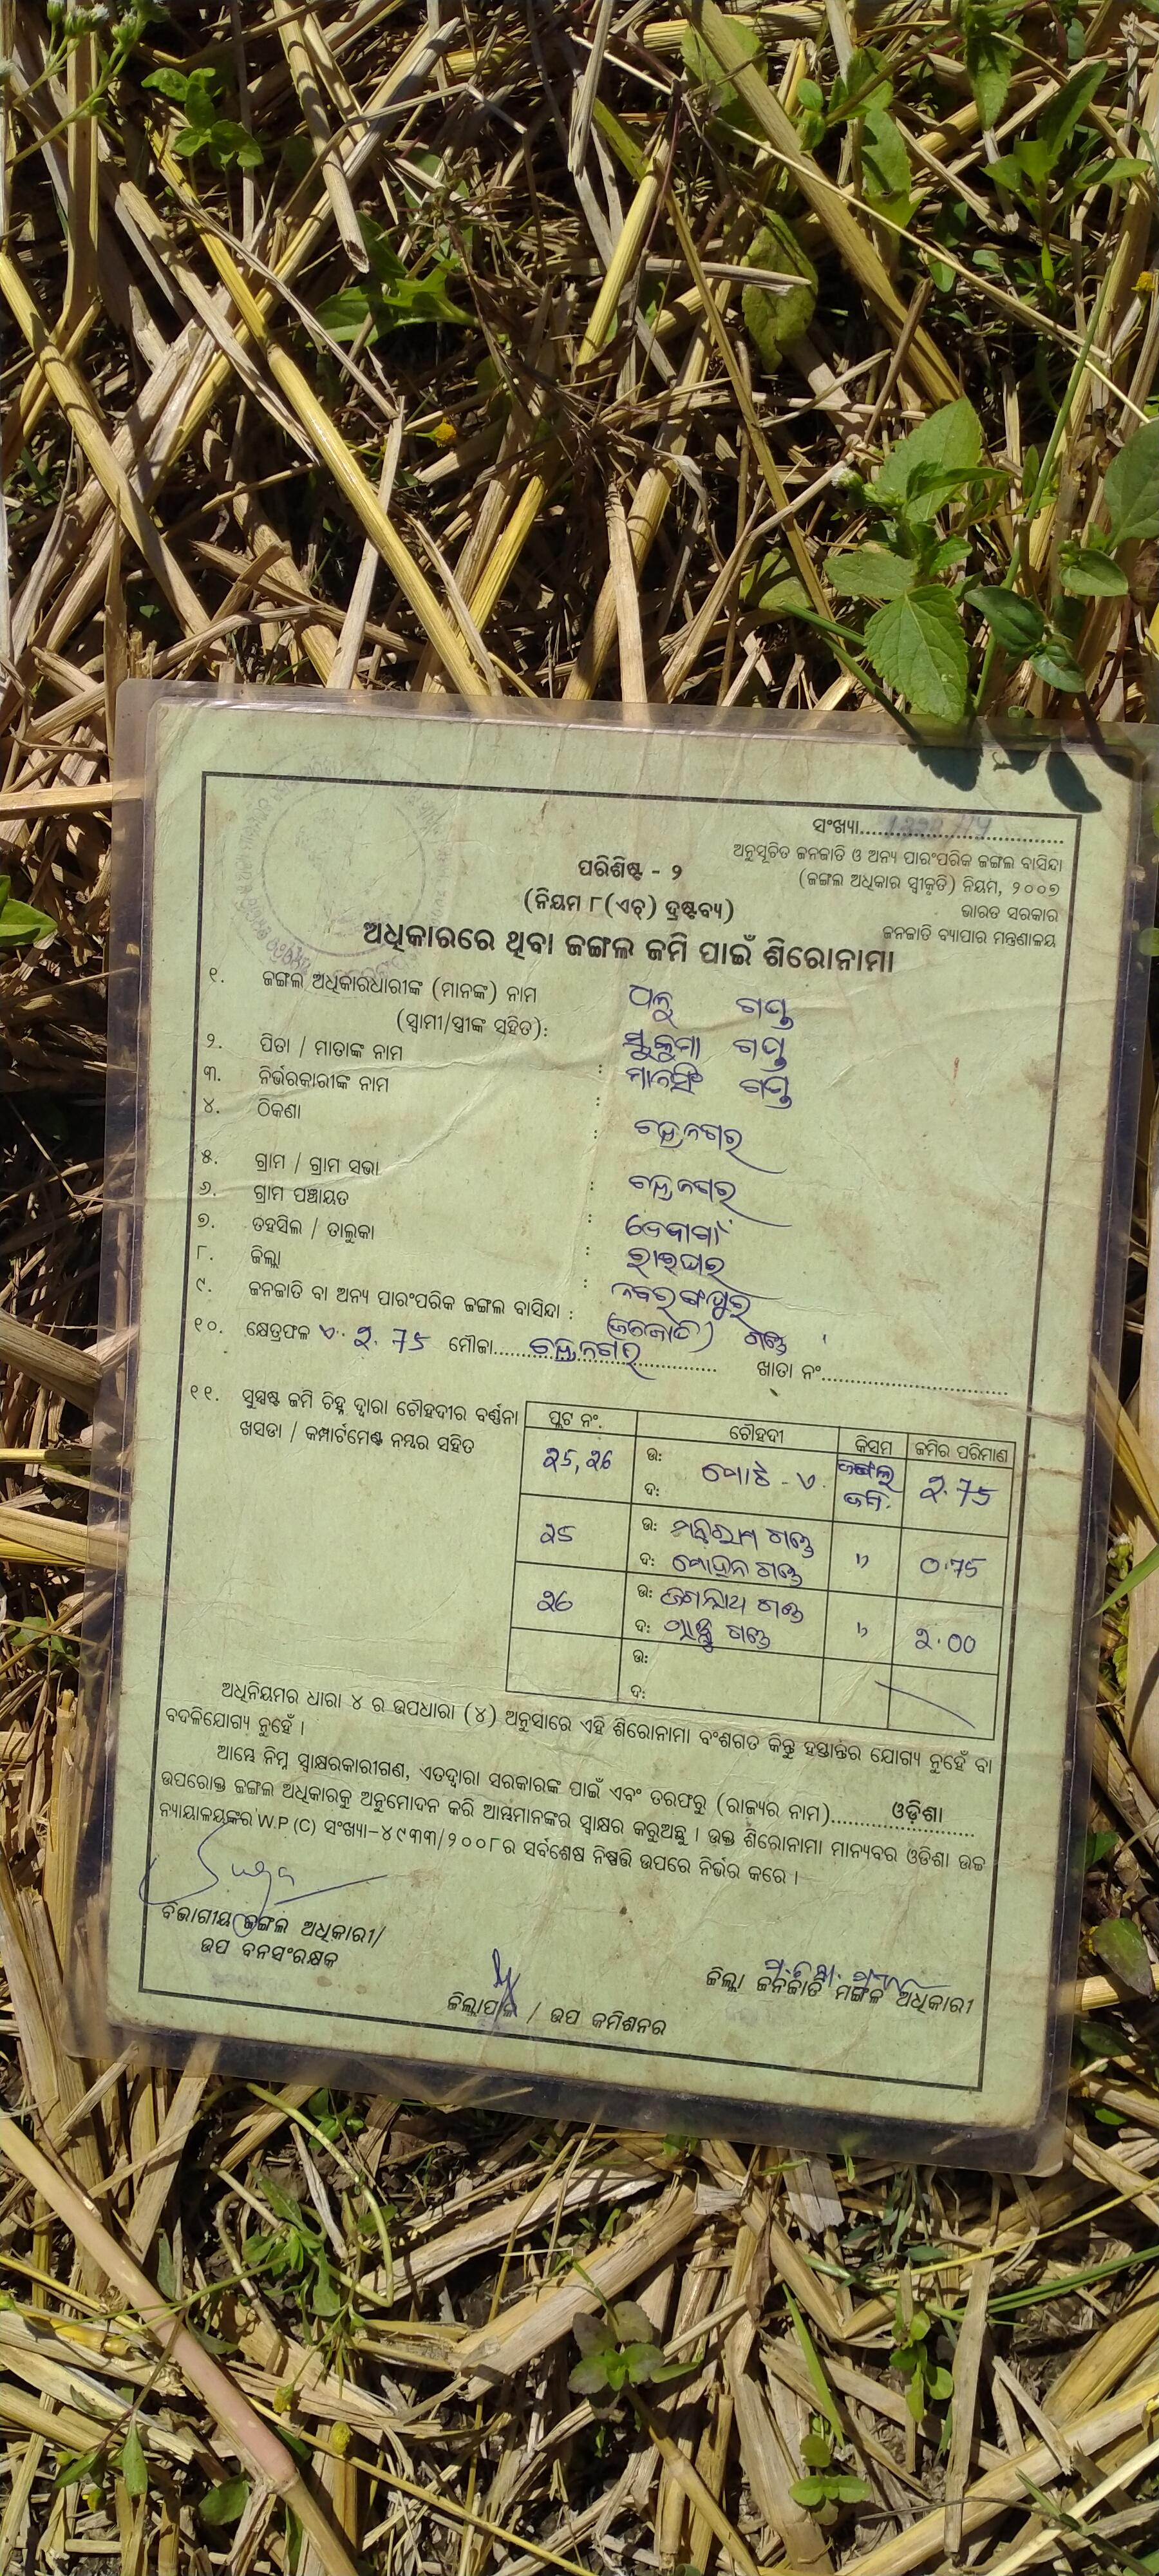 ସଂଖ୍ୟା....................
ଅନୁସୂଚିତ ଜନଜାତି ଓ ଅନ୍ୟ ପାରଂପରିକ ଜଙ୍ଗଲ ବାସିନ୍ଦା
(ଜଙ୍ଗଲ ଅଧିକାର ସ୍ୱୀକୃତି) ନିୟମ, ୨୦୦୭
ଭାରତ ସରକାର
ଜନଜାତି ବ୍ୟାପାର ମନ୍ତ୍ରଣାଳୟ
ପରିଶିଷ୍ଟ - ୨
(ନିୟମ ୮(ଏଚ୍) ଦ୍ରଷ୍ଟବ୍ୟ)
ଅଧିକାରରେ ଥିବା ଜଙ୍ଗଲ ଜମି ପାଇଁ ଶିରୋନାମା
୧. ଜଙ୍ଗଲ ଅଧିକାରଧାରୀଙ୍କ (ମାନଙ୍କ) ନାମ
(ସ୍ୱାମୀ/ସ୍ତ୍ରୀଙ୍କ ସହିତ):
୨. ପିତା / ମାତାଙ୍କ ନାମ :
୩. ନିର୍ଭରକାରୀଙ୍କ ନାମ : ମାନସିଂ
୪. ଠିକଣା : ଚନ୍ଦ୍ରନଗର
୫. ଗ୍ରାମ / ଗ୍ରାମ ସଭା : ଚନ୍ଦ୍ରନଗର
୬. ଗ୍ରାମ ପଞ୍ଚାୟତ :
୭. ତହସିଲ / ତାଲୁକା : ରାଇଘର
୮. ଜିଲ୍ଲା : ନବରଙ୍ଗପୁର
୯. ଜନଜାତି ବା ଅନ୍ୟ ପାରଂପରିକ ଜଙ୍ଗଲ ବାସିନ୍ଦା : (ଜନଜାତି) ଗଣ୍ଡ
୧୦. କ୍ଷେତ୍ରଫଳ ଏ. ୨.75 ମୌଜା.... ଚନ୍ଦ୍ରନଗର .... ଖାତା ନଂ....................
୧୧. ସୁସ୍ପଷ୍ଟ ଜମି ଚିହ୍ନ ଦ୍ୱାରା ଚୌହଦୀର ବର୍ଣ୍ଣନା
ଖସଡା / କମ୍ପାର୍ଟମେଣ୍ଟ ନମ୍ବର ସହିତ
ପ୍ଲଟ ନଂ. ଚୌହଦୀ କିସମ ଜମିର ପରିମାଣ
୨5, ୨6 ଉ: ଦ: ମୋଠ - ଏ. ଜଙ୍ଗଲ ଜମି ୨.75
୨5 ଉ: ଗଣ୍ଡ ୦.75
ଦ: ମୋହନ ଗଣ୍ଡ
୨6 ଉ: ଜଗନ୍ନାଥ ଗଣ୍ଡ ୨.00
ଦ: ଗଣ୍ଡ
ଉ:
ଦ:
ଅଧିନିୟମର ଧାରା ୪ ର ଉପଧାରା (୪) ଅନୁସାରେ ଏହି ଶିରୋନାମା ବଂଶଗତ କିନ୍ତୁ ହସ୍ତାନ୍ତର ଯୋଗ୍ୟ ନୁହେଁ ବା
ବଦଳିଯୋଗ୍ୟ ନୁହେଁ ।
ଆମ୍ଭେ ନିମ୍ନ ସ୍ୱାକ୍ଷରକାରୀଗଣ, ଏତଦ୍ୱାରା ସରକାରଙ୍କ ପାଇଁ ଏବଂ ତରଫରୁ (ରାଜ୍ୟର ନାମ)...... ଓଡ଼ିଶା ......
ଉପରୋକ୍ତ ଜଙ୍ଗଲ ଅଧିକାରକୁ ଅନୁମୋଦନ କରି ଆମ୍ଭମାନଙ୍କର ସ୍ୱାକ୍ଷର କରୁଅଛୁ । ଉକ୍ତ ଶିରୋନାମା ମାନ୍ୟବର ଓଡିଶା ଉଚ୍ଚ
ନ୍ୟାୟାଳୟଙ୍କର W.P (C) ସଂଖ୍ୟା-୪୯୩୩/୨୦୦୮ର ସର୍ବଶେଷ ନିଷ୍ପତ୍ତି ଉପରେ ନିର୍ଭର କରେ ।
ବିଭାଗୀୟ ଜଙ୍ଗଲ ଅଧିକାରୀ/
ଉପ ବନସଂରକ୍ଷକ
ଜିଲ୍ଲାପାଳ / ଉପ କମିଶନର
ଜିଲ୍ଲା ଜନଜାତି ମଙ୍ଗଳ ଅଧିକାରୀ